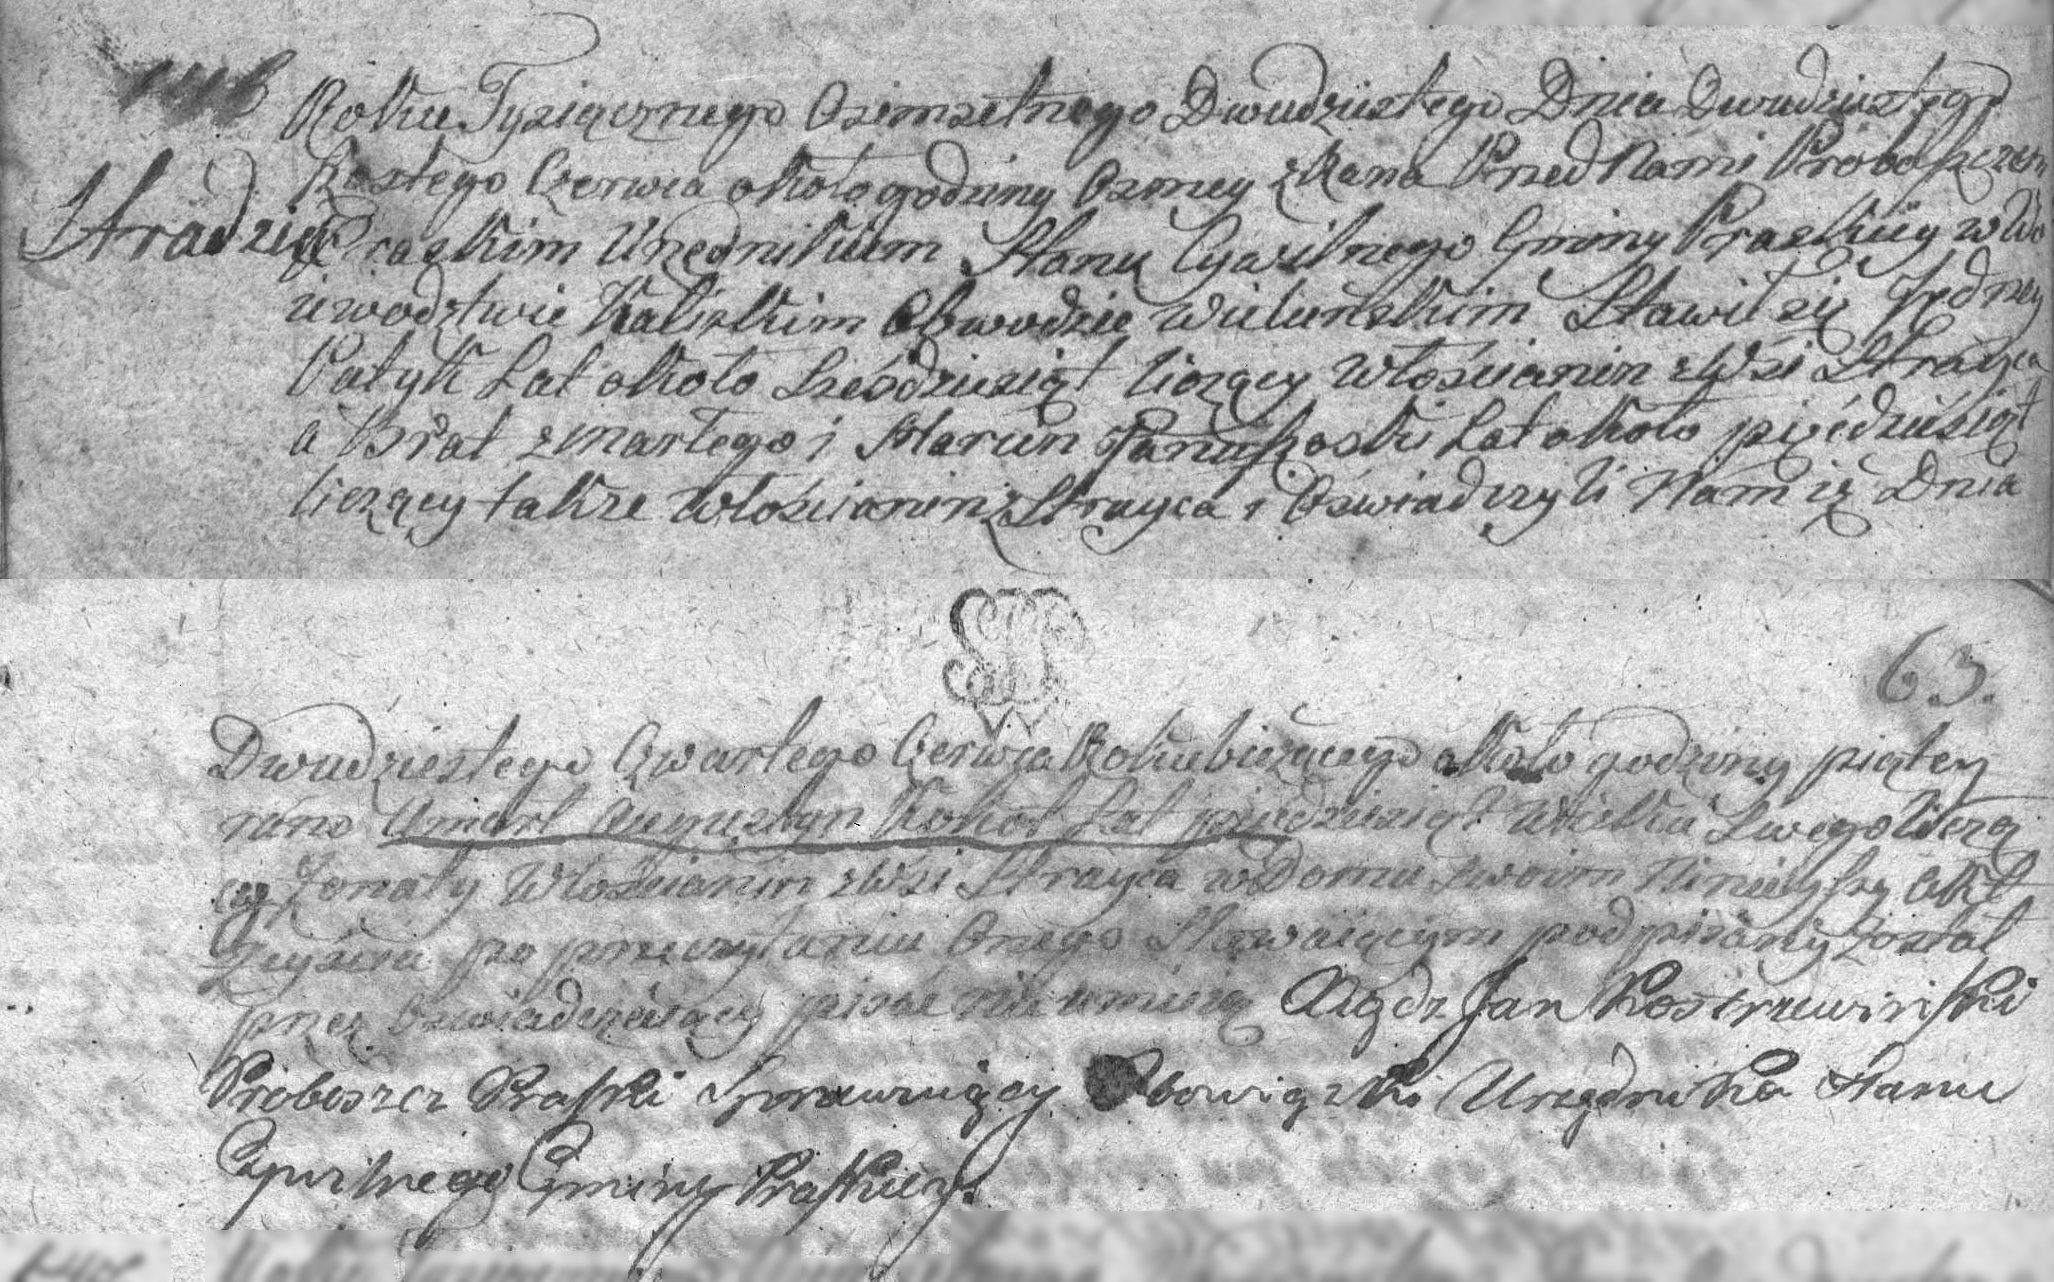 Roku Tysiącznego Osimsetnego Dwudziestego Dnia Dwudziestego
Szostego Czerwca około godziny Osmey z Rana Przed Nami Proboszczem
Stradziec Praskim Urzędnikiem Stanu Cywilnego Gminy Praskiey w Wo
iewodztwie Kaliskim Obwodzie Wieluńskim Stawił się Jędrzey
Patyk Lat około Sześdziesiąt liczący Włościanin z Wsi Strayca
a Brat zmarłego i Marcin Lat około pięćdziesiąt
liczący także Włościanin z Strayca i Oświadczyli Nam iż Dnia
63.
Dwudziestego Czwartego Czerwca Roku bieżącego około godziny piątey
rano Umarł Augustyn Kokot Lat pięćdziesiąt Wieku Swego licżą
cy Zonaty Włościanin z Wsi Strayca w Domu Swoim Ninieyszy Akt
Zeyscia po przeczytaniu Onego Stawaiącym podpisany został
przez Oswiadczaiący pisać nie umieią Xiądz Jan Kostrzewiński
Proboszcz Praski Sprawuiący Obowiązki Urzędnika Stanu
Cywilnego Gminy Praskiey.